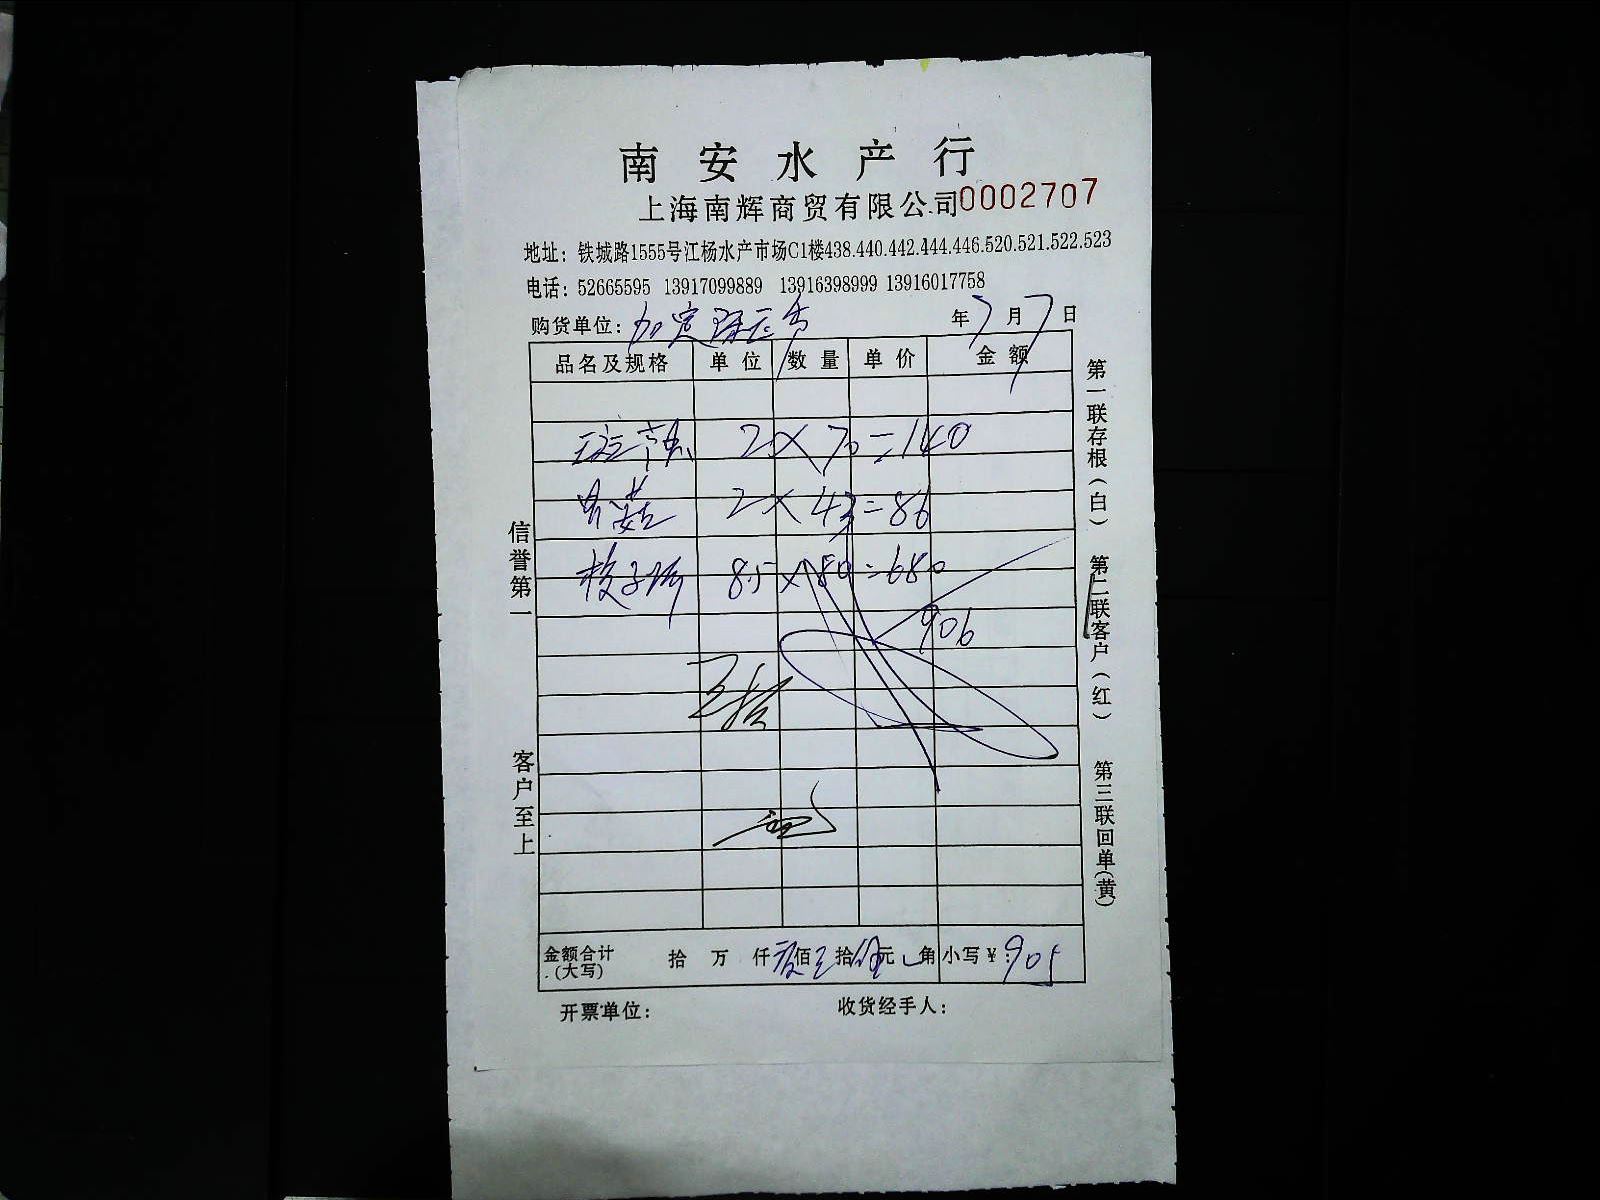 南安水产行
上海南辉商贸有限公司 0002707
地址：铁城路1555号江杨水产市场C1楼438.440.442.444.446.520.521.522.523
电话：52665595 13917099889 13916398999 13916017758
购货单位： 年7月7日
品名及规格 单位 数量 单价 金额
2×70=140
2×43=86
8.5×80=680
906
金额合计(大写) 拾 万 仟 佰 拾 元 角 小写¥：905
开票单位： 收货经手人：
信誉第一
客户至上
第一联存根(白) 第二联客户(红) 第三联回单(黄)